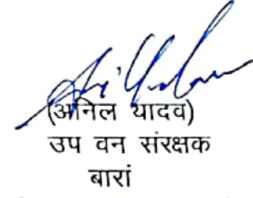 (अनिल यादव)
उप वन संरक्षक
बारां